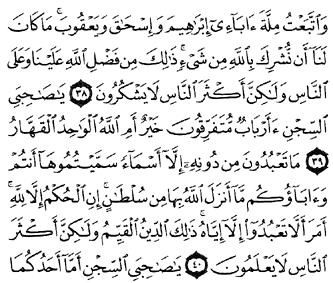 وَٱتَّبَعْتُ مِلَّةَ ءَابَآءِىٓ إِبْرَٰهِيمَ وَإِسْحَٰقَ وَيَعْقُوبَ ۚ مَا كَانَ
لَنَآ أَن نُّشْرِكَ بِٱللَّهِ مِن شَىْءٍ ۚ ذَٰلِكَ مِن فَضْلِ ٱللَّهِ عَلَيْنَا وَعَلَى
ٱلنَّاسِ وَلَٰكِنَّ أَكْثَرَ ٱلنَّاسِ لَا يَشْكُرُونَ ٣٨ يَٰصَىٰحِبَىِ
ٱلسِّجْنِ ءَأَرْبَابٌ مُّتَفَرِّقُونَ خَيْرٌ أَمِ ٱللَّهُ ٱلْوَٰحِدُ ٱلْقَهَّارُ
٣٩ مَا تَعْبُدُونَ مِن دُونِهِۦٓ إِلَّآ أَسْمَآءً سَمَّيْتُمُوهَآ أَنتُمْ
وَءَابَآؤُكُم مَّآ أَنزَلَ ٱللَّهُ بِهَا مِن سُلْطَٰنٍ ۚ إِنِ ٱلْحُكْمُ إِلَّا لِلَّهِ ۚ
أَمَرَ أَلَّا تَعْبُدُوٓا۟ إِلَّآ إِيَّاهُ ۚ ذَٰلِكَ ٱلدِّينُ ٱلْقَيِّمُ وَلَٰكِنَّ أَكْثَرَ
ٱلنَّاسِ لَا يَعْلَمُونَ ٤٠ يَٰصَىٰحِبَىِ ٱلسِّجْنِ أَمَّآ أَحَدُكُمَا